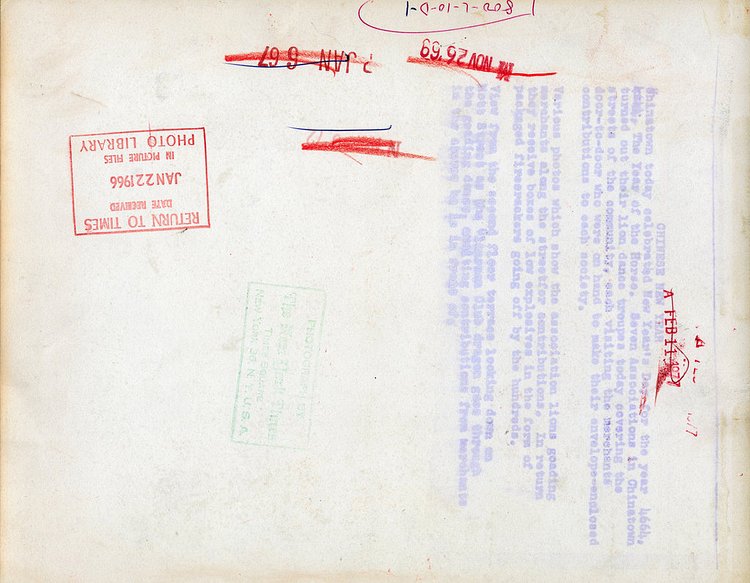 800-L-10-D-1
NOV 26 69
JAN 6 67
RETURN TO TIMES
DATE RECEIVED
JAN 22 1966
IN PICTURE FILES
PHOTO LIBRARY
CHINESE NEW YEAR
Chinatown today celebrated New Year's Day for the year 4664,
The Year of the Horse. Seven Associations in Chinatown
turned out their lion dance troupes today covering the
streets of the community, each visiting the merchants
door-to-door who were on hand to make their envelope-enclosed
contributions to each society.
Various photos which show the association lions goading
merchants along the streetfor contributions. In return
they receive boxes of low explosives in the form of
packaged firecrackers going off by the hundreds.
View from the second floor terrace looking down on
Mott Street as the dragon goes through
the dance, contributions from merchants
A FEB 11
PHOTOGRAPH BY
The New York Times
TIMES SQUARE
NEW YORK 36, N.Y., U.S.A.